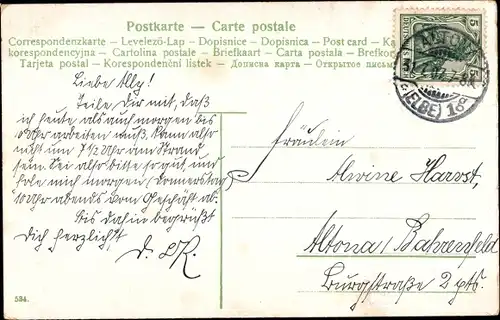 Postkarte — Carte postale
Correspondenzkarte — Levelező-Lap — Dopisnice — Dopisnica — Post card — Ka
korespondencyjna — Cartolina postale — Briefkaart — Carta postala — Brefkor
Tarjeta postal — Korespondenční listek — Дописна карта — Открытое письм
ALTONA
(ELBE) 1a
5
Liebe Ally!
Teile Dir mit, daß
ich heute als auch morgen bis
10 Uhr arbeiten muß. Kann also
nicht um 7 1/2 Uhr am Strand
sein. Sei also bitte so gut, und
hole mich morgen (Donnerstag)
10 Uhr abends vom Geschäft ab.
Bis dahin begrüßt
Dich herzlichst
D. R.
Fräulein
Alwine Harvst,
Altona / Bahrenfeld
Burgstraße 2 pts.
534.